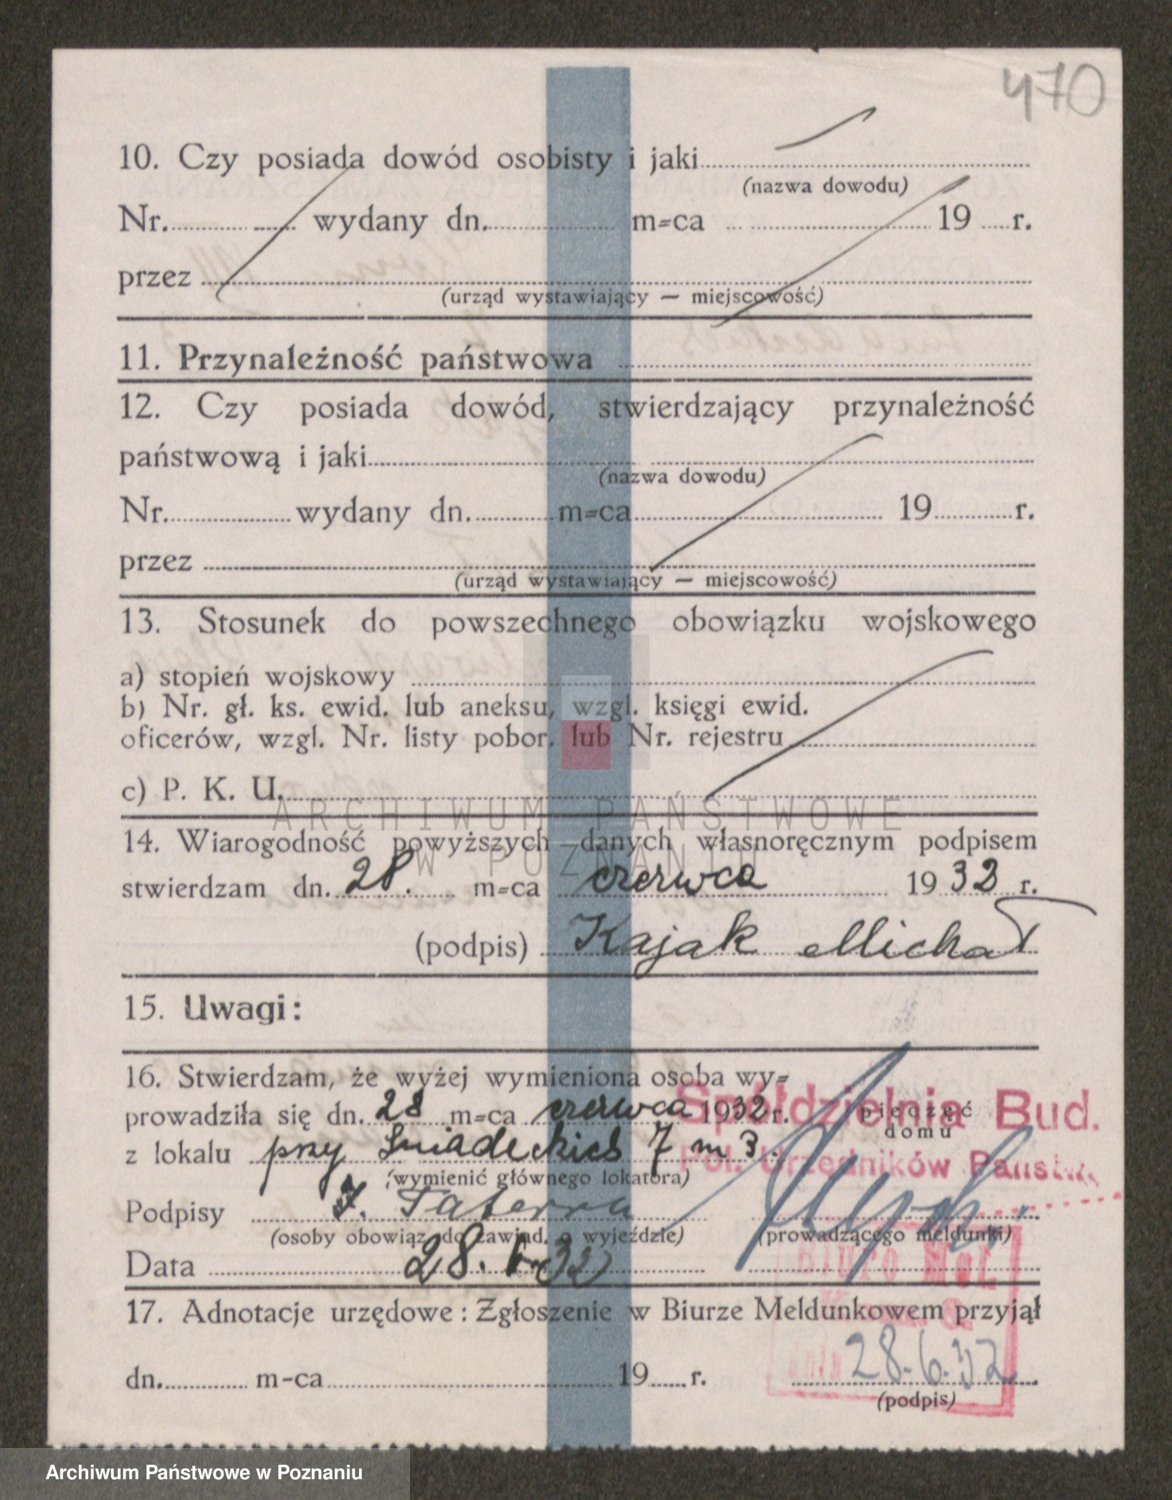 470
10. Czy posiada dowód osobisty i jaki
(nazwa dowodu)
Nr. wydany dn. m-ca 19 r.
przez
(urząd wystawiający — miejscowość)
11. Przynależność państwowa
12. Czy posiada dowód, stwierdzający przynależność
państwową i jaki
(nazwa dowodu)
Nr. wydany dn. m-ca 19 r.
przez
(urząd wystawiający — miejscowość)
13. Stosunek do powszechnego obowiązku wojskowego
a) stopień wojskowy
b) Nr. gł. ks. ewid. lub aneksu, wzgl. księgi ewid.
oficerów, wzgl. Nr. listy pobor. lub Nr. rejestru
c) P. K. U.
ARCHIWUM PAŃSTWOWE
W POZNANIU
14. Wiarogodność powyższych danych własnoręcznym podpisem
stwierdzam dn. 28. m-ca czerwca 1932 r.
(podpis) Kajak Michał
15. Uwagi:
16. Stwierdzam, że wyżej wymieniona osoba wy-
prowadziła się dn. 28 m-ca czerwca 1932 r.
Spółdzielnia Bud.
pieczęć
domu
z lokalu przy Śniadeckich 7 m 3.
Pol. Urzędników Państw.
(wymienić głównego lokatora)
Podpisy J. Taterra
(osoby obowiąz. do zawiad. o wyjeździe) (prowadzącego meldunki)
Data 28. 6. 32
Biuro Mel.
17. Adnotacje urzędowe: Zgłoszenie w Biurze Meldunkowem przyjął
dnia 28.6.32
dn. m-ca 19 r.
(podpis)
Archiwum Państwowe w Poznaniu